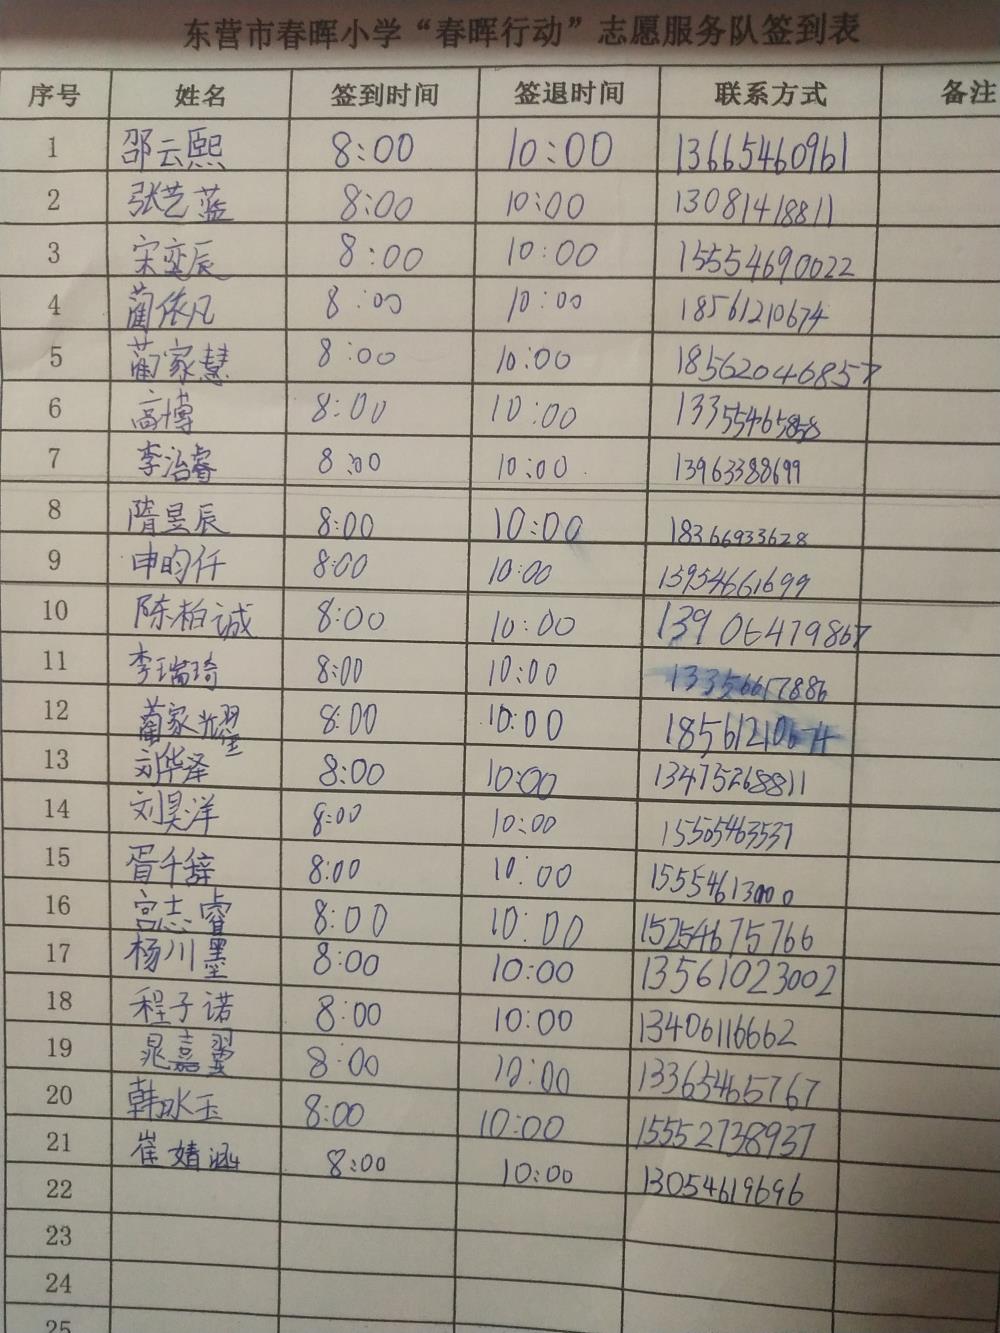 东营市春晖小学“春晖行动”志愿服务队签到表
序号 姓名 签到时间 签退时间 联系方式 备注
1 邵云熙 8:00 10:00 13665460961
2 张艺蓝 8:00 10:00 13081418811
3 宋奕辰 8:00 10:00 15554690022
4 蔺依凡 8:00 10:00 18561210674
5 蔺家慧 8:00 10:00 18562046857
6 高博 8:00 10:00 13355465858
7 李治睿 8:00 10:00 13963388699
8 隋昱辰 8:00 10:00 18366933628
9 申昀仟 8:00 10:00 15954661699
10 陈柏诚 8:00 10:00 13906479867
11 李瑞琦 8:00 10:00 13356617886
12 蔺家耀 8:00 10:00 18561210674
13 刘华泽 8:00 10:00 13475268811
14 刘昊洋 8:00 10:00 15505463537
15 胥千辞 8:00 10:00 15554613000
16 宫志睿 8:00 10:00 15254675766
17 杨川墨 8:00 10:00 13561023002
18 程子诺 8:00 10:00 13406116662
19 晁嘉翼 8:00 10:00 13365465767
20 韩冰玉 8:00 10:00 15552738937
21 崔婧涵 8:00 10:00 13054619696
22
23
24
25